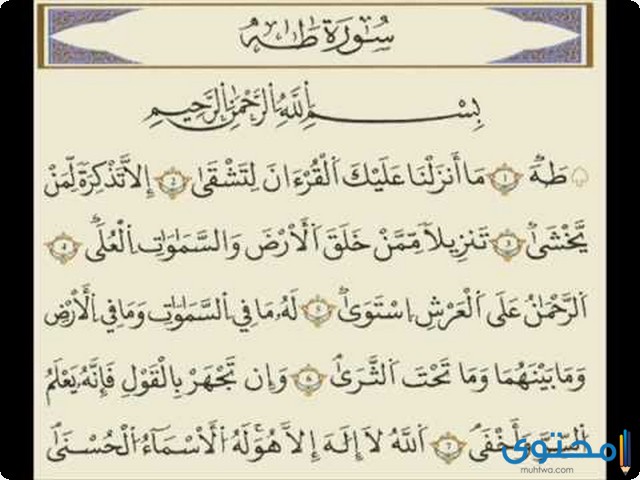 سُورَةُ طٰهٰ
بِسْمِ اللَّهِ الرَّحْمَٰنِ الرَّحِيمِ
طه ۝١ مَا أَنزَلْنَا عَلَيْكَ الْقُرْءَانَ لِتَشْقَىٰ ۝٢ إِلَّا تَذْكِرَةً لِّمَنْ
يَخْشَىٰ ۝٣ تَنزِيلًا مِّمَّنْ خَلَقَ الْأَرْضَ وَالسَّمَٰوَٰتِ الْعُلَى ۝٤
الرَّحْمَٰنُ عَلَى الْعَرْشِ اسْتَوَىٰ ۝٥ لَهُۥ مَا فِي السَّمَٰوَٰتِ وَمَا فِي الْأَرْضِ
وَمَا بَيْنَهُمَا وَمَا تَحْتَ الثَّرَىٰ ۝٦ وَإِن تَجْهَرْ بِالْقَوْلِ فَإِنَّهُۥ يَعْلَمُ
السِّرَّ وَأَخْفَى ۝٧ اللَّهُ لَا إِلَٰهَ إِلَّا هُوَ لَهُ الْأَسْمَاءُ الْحُسْنَىٰ
محتوى
muhtwa.com